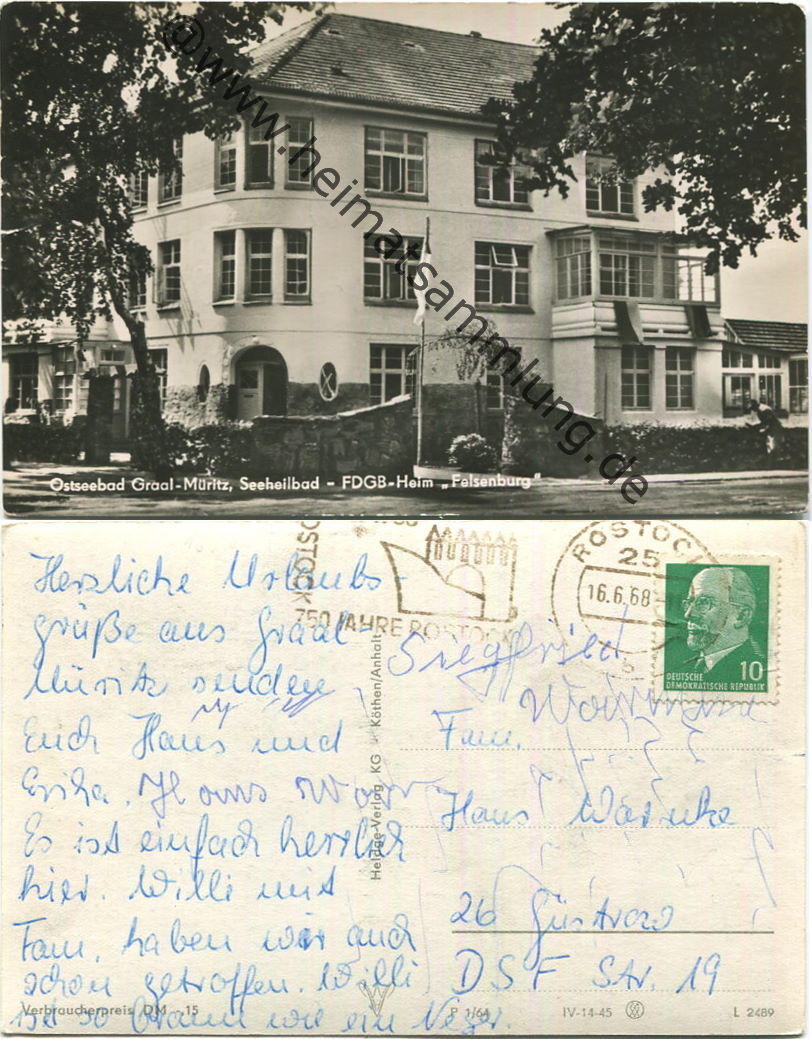 @www.heimatsammlung.de
Ostseebad Graal-Müritz, Seeheilbad - FDGB-Heim „Felsenburg"
ROSTOCK
750 JAHRE ROSTOCK
ROSTOCK
25
16.6.68
10
DEUTSCHE
DEMOKRATISCHE REPUBLIK
Herzliche Urlaubs-
grüße aus Graal-
Müritz senden
Euch Hans und
Erika. Hans War
Es ist einfach herrlich
hier. Willi mit
Fam. haben wir auch
schon getroffen. Willi
ist so braun wie ein Neger.
Heldge-Verlag KG Köthen/Anhalt
Siegfried
Fam.
Hans Warnke
26 Güstrow
DSF Str. 19
Verbraucherpreis DM -,15
P 1/64 IV-14-45 L 2489